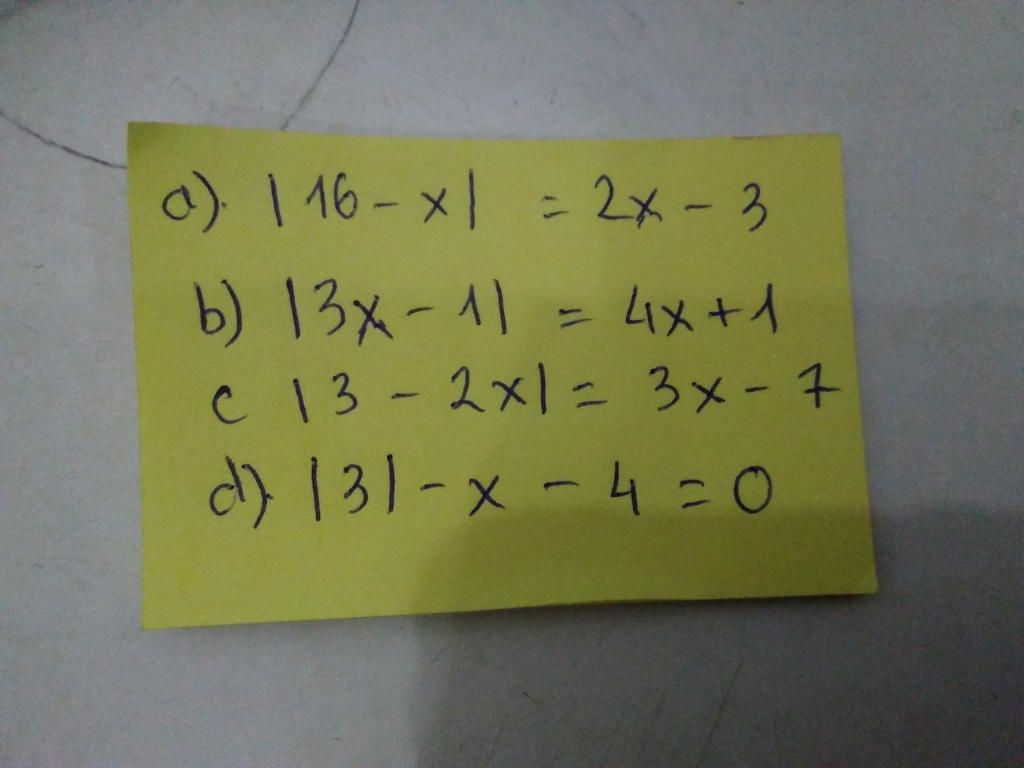 a). |16 - x| = 2x - 3
b) |3x - 1| = 4x + 1
c |3 - 2x| = 3x - 7
d). |3| - x - 4 = 0